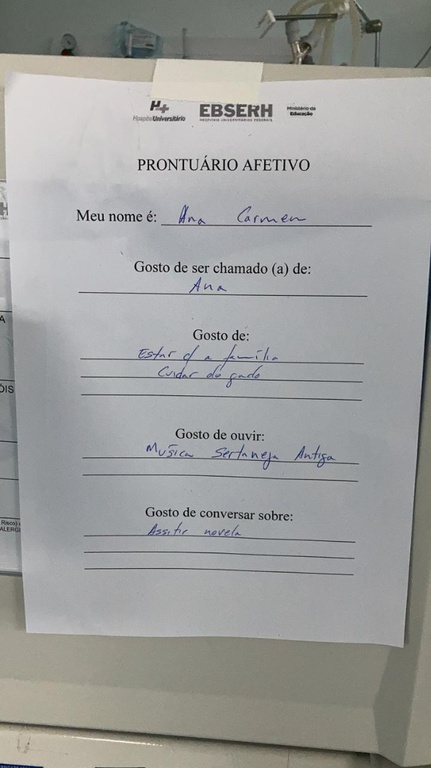 H+
HospitalUniversitário
EBSERH
HOSPITAIS UNIVERSITÁRIOS FEDERAIS
Ministério da
Educação
PRONTUÁRIO AFETIVO
Meu nome é: Ana Carmen
Gosto de ser chamado (a) de:
Ana
Gosto de:
Estar c/ a família
Cuidar do gado
Gosto de ouvir:
Musica Sertaneja Antiga
Gosto de conversar sobre:
Assitir novela
H
A
ÓIS
Risco)
ALERG